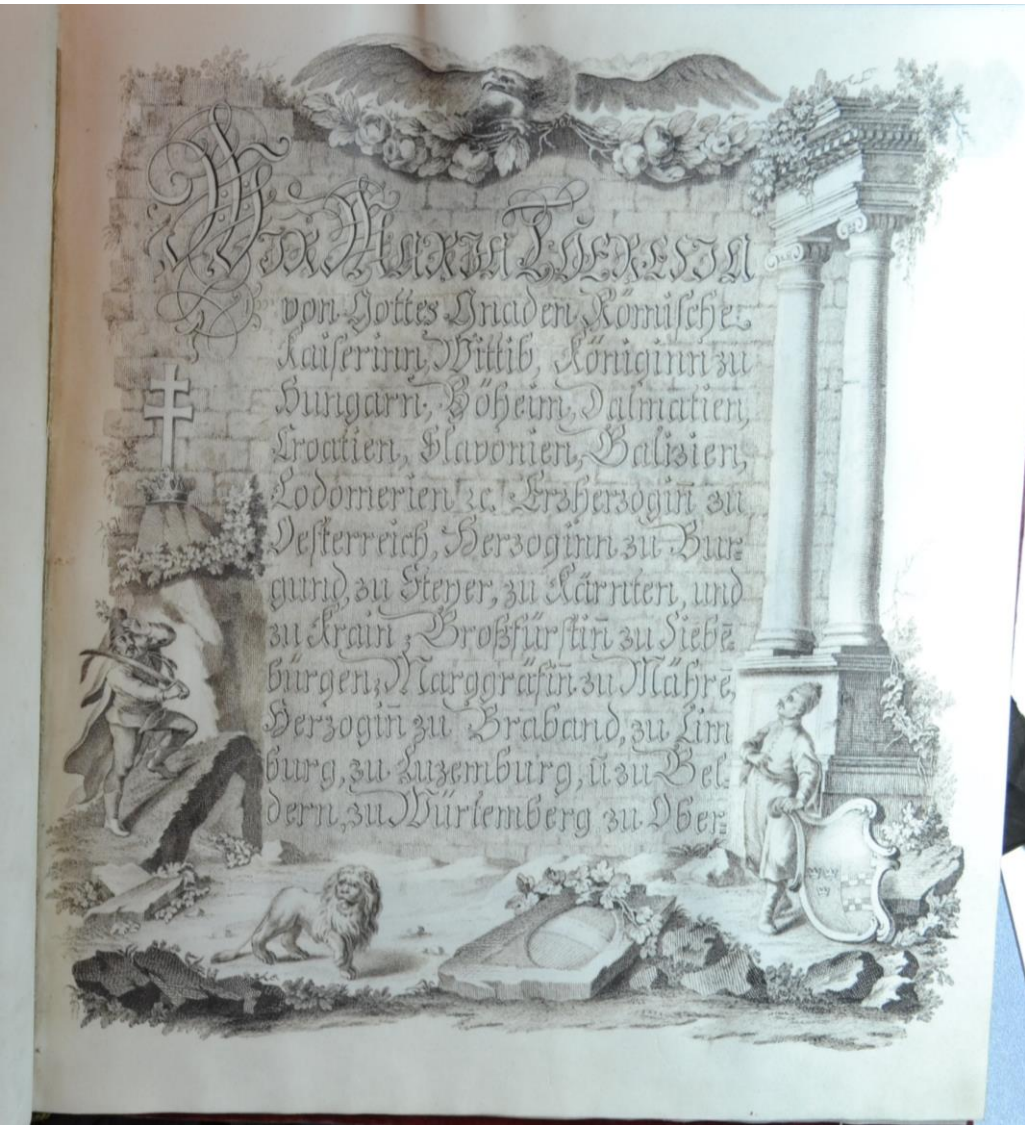 Wir Maria Theresia
von Gottes Gnaden, Römische
Kaiserinn, Wittib, Königinn zu
Hungarn, Böheim, Dalmatien,
Croatien, Slavonien, Galizien,
Lodomerien ꝛc. Erzherzogiñ zu
Oesterreich, Herzoginn zu Bur-
gund, zu Steyer, zu Kärnten, und
zu Krain, Großfürstiñ zu Siebē
bürgen, Marggräfiñ zu Mährē,
Herzogiñ zu Braband, zu Lim
burg, zu Luzemburg, ū zu Gel-
dern, zu Würtemberg zu Ober-